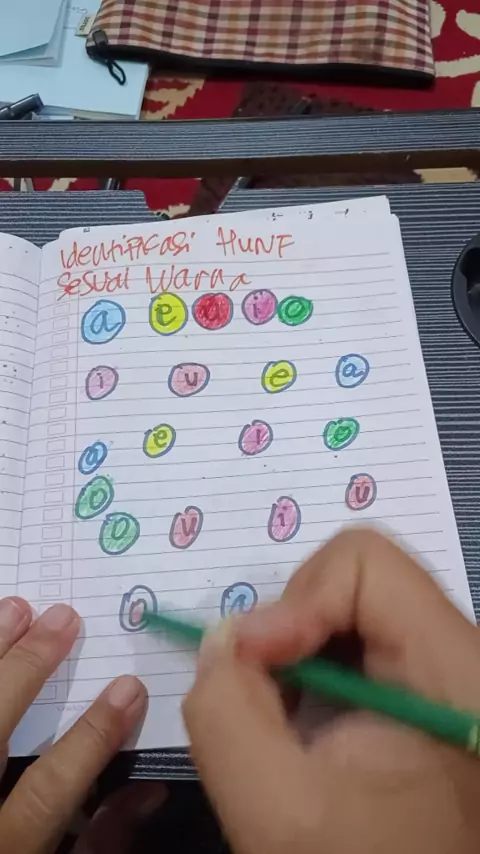 Identifikasi Huruf
Sesuai Warna
a e u i o
i u e a
a e i o
o
o u i u
o a